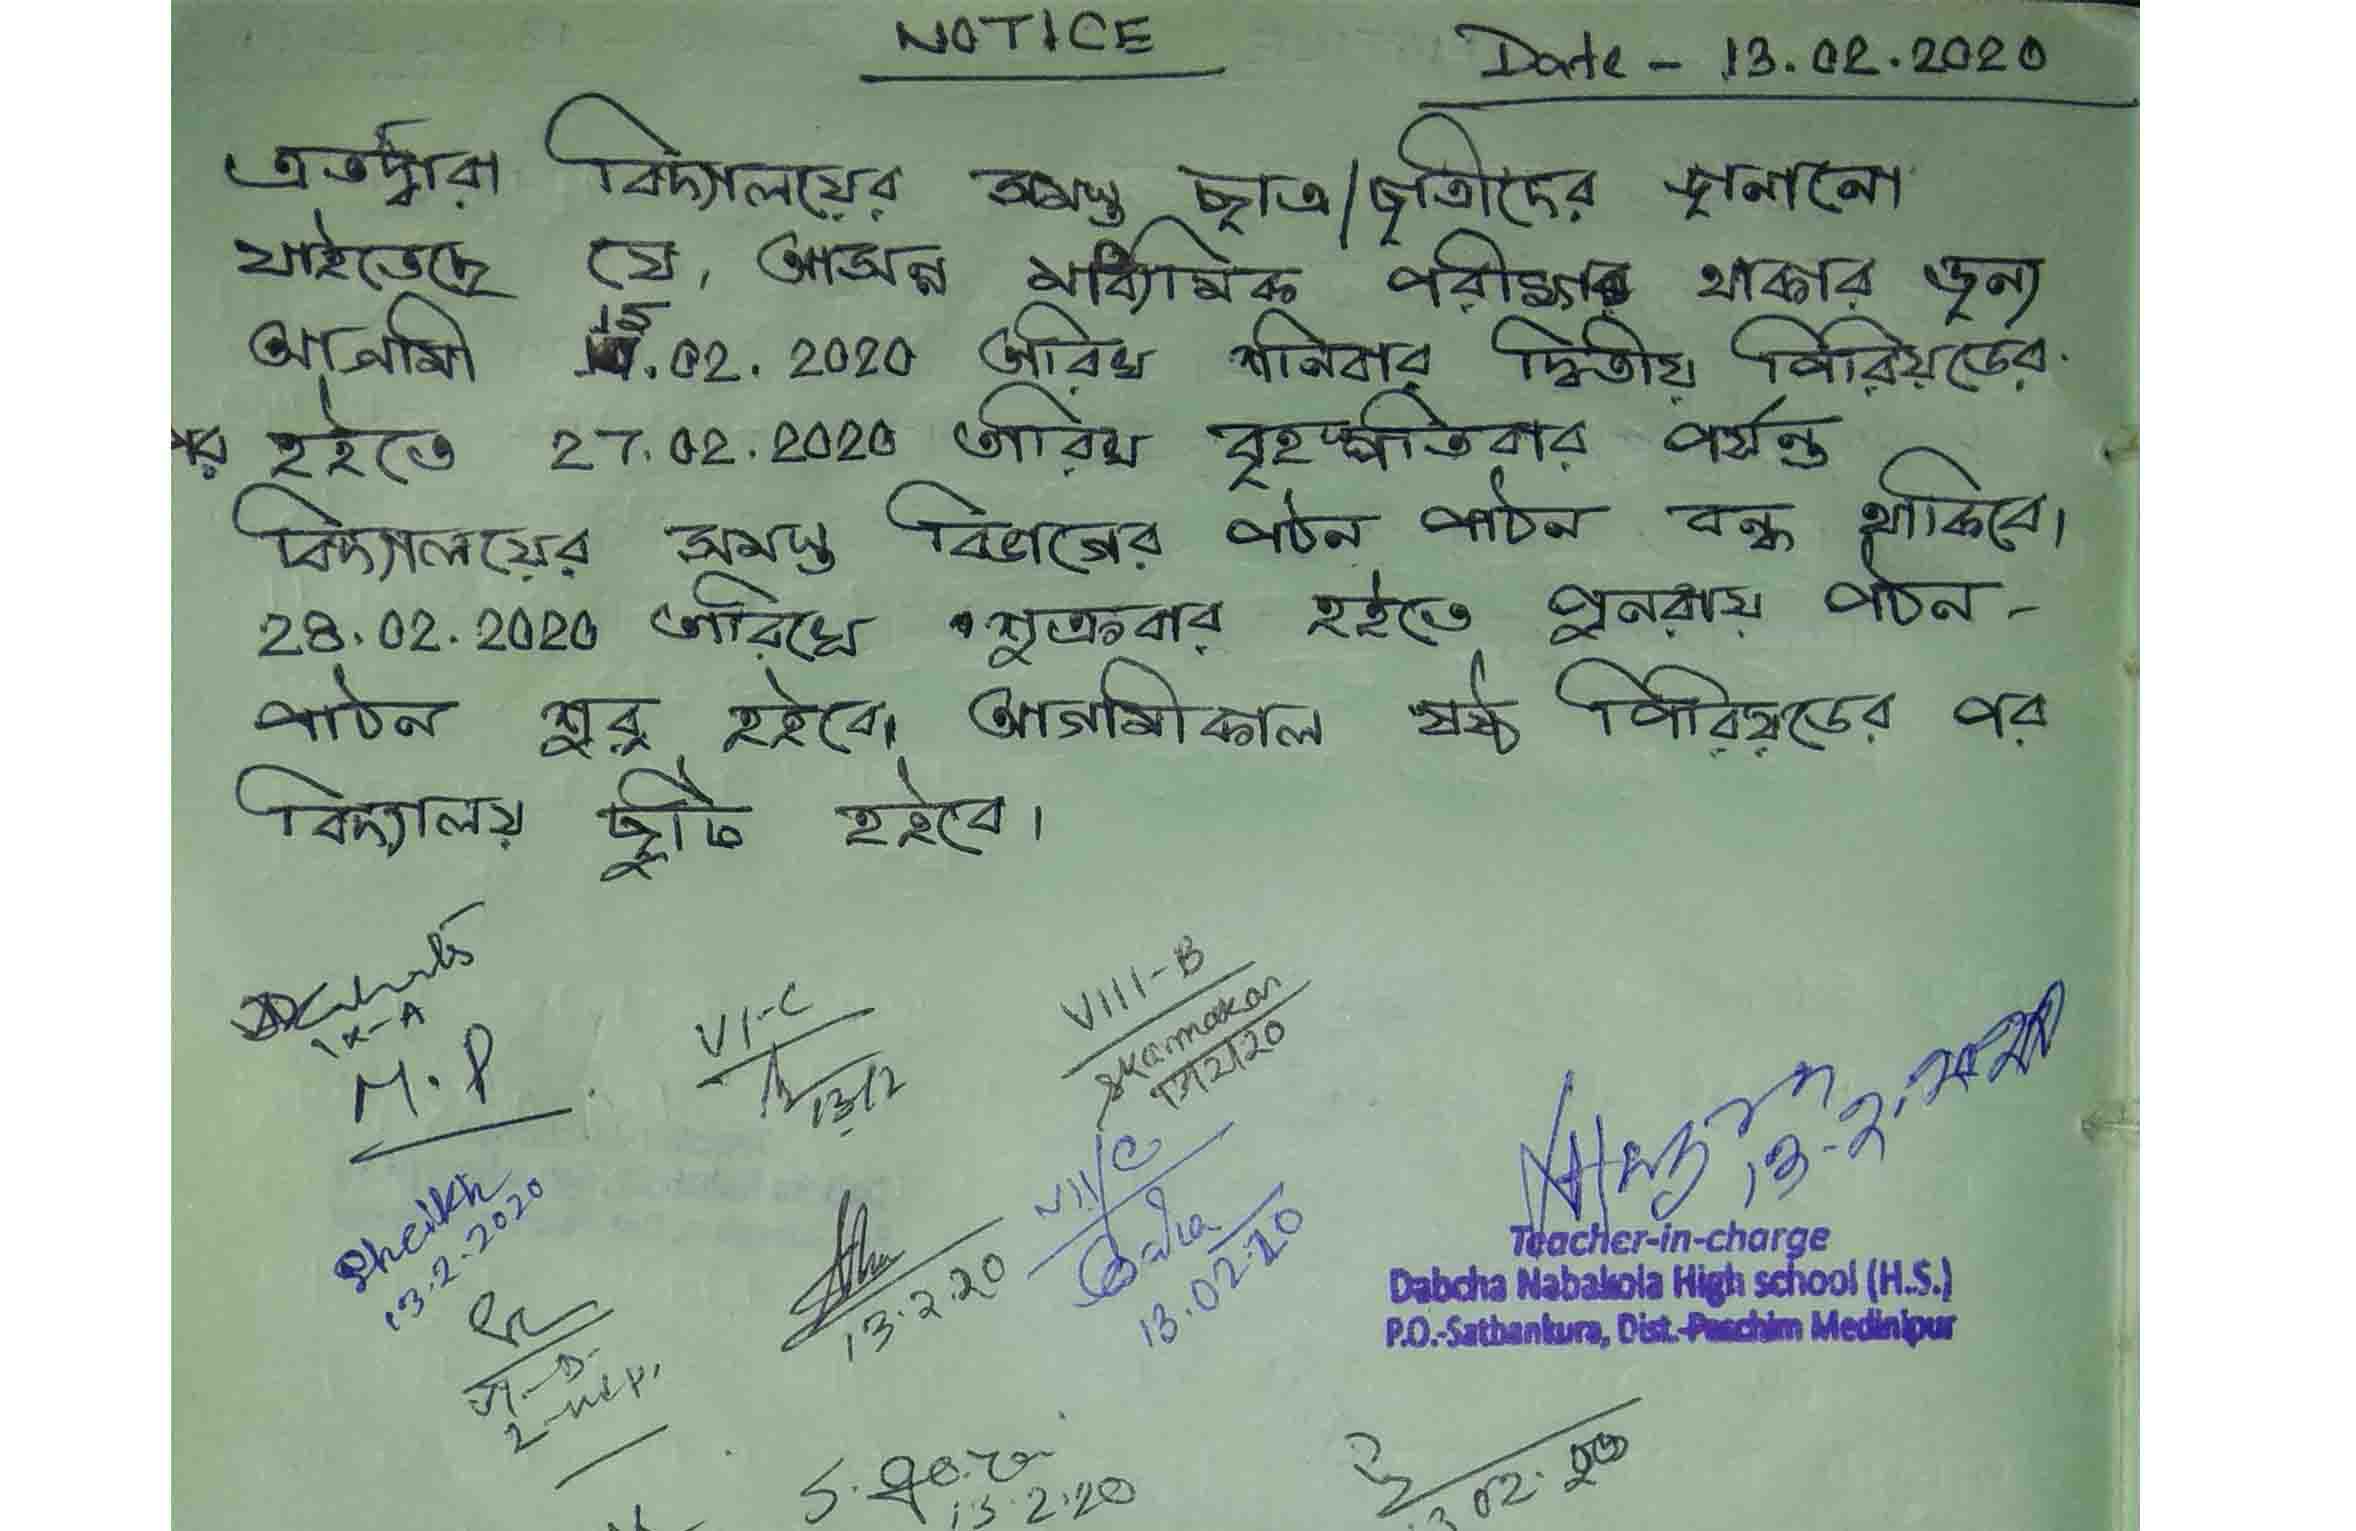 NOTICE
Date - 13.02.2020
এতদ্বারা বিদ্যালয়ের সমস্ত ছাত্র/ছাত্রীদের জানানো
যাইতেছে যে, আসন্ন মাধ্যমিক পরীক্ষার থাকার জন্য
আগামী 15.02.2020 তারিখ শনিবার দ্বিতীয় পিরিয়ডের
পর হইতে 27.02.2020 তারিখ বৃহস্পতিবার পর্যন্ত
বিদ্যালয়ের সমস্ত বিভাগের পঠন পাঠন বন্ধ থাকিবে।
28.02.2020 তারিখে শুক্রবার হইতে পুনরায় পঠন-
পাঠন শুরু হইবে। আগামীকাল ষষ্ঠ পিরিয়ডের পর
বিদ্যালয় ছুটি হইবে।
IX-A
M.P
VI-C
13/2
VIII-B
skarmakar
13/2/20
Sheikh
13.2.2020
13.2.20
VII/C
13.02.20
13.2.2020
Teacher-in-charge
Dabcha Nabakola High school (H.S.)
P.O.-Satbankura, Dist.-Paschim Medinipur
13.2.20